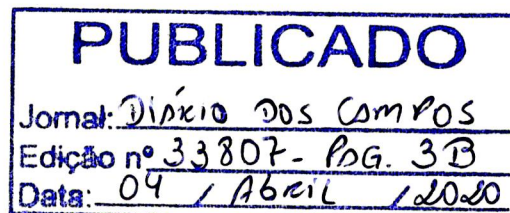 PUBLICADO
Jornal: DIÁRIO DOS CAMPOS
Edição nº 33807- PAG. 3B
Data: 04 / Abril / 2020